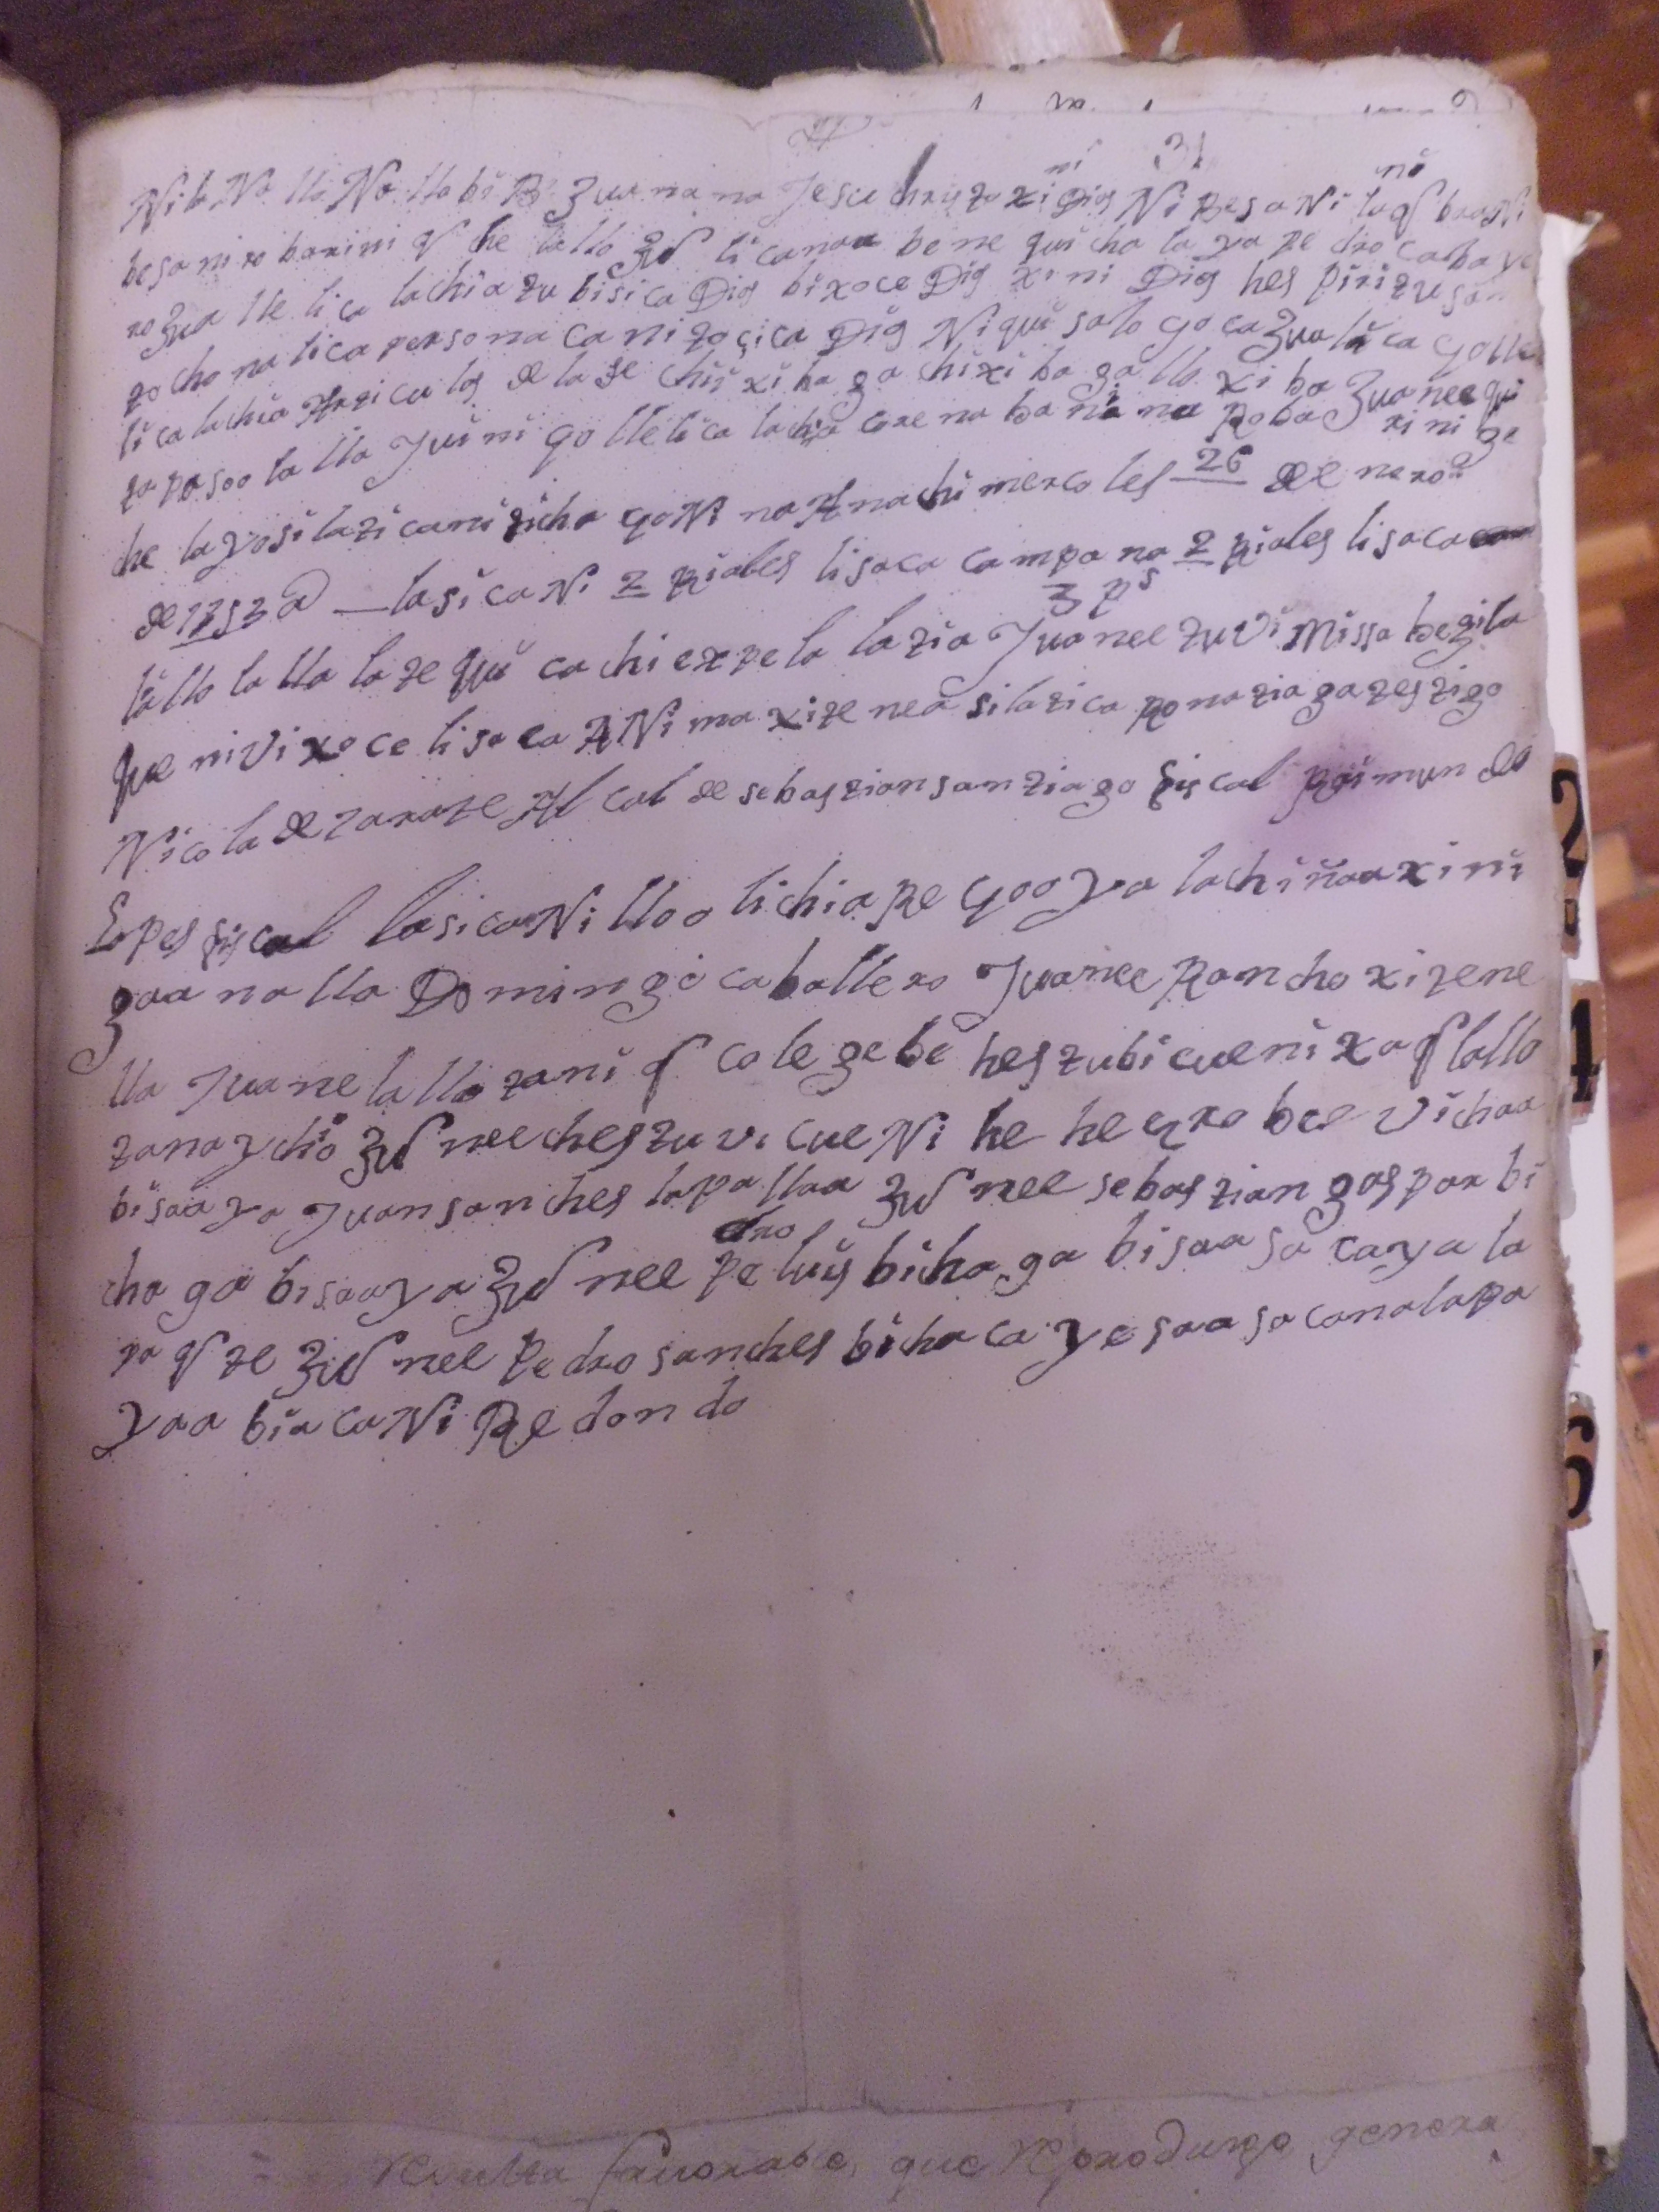 31
Nila Na lli Na lla bi Zuanana Jesu chryzo xini Dios Ni Besa Ni laqʃ braNi
besa niro barini qʃ he lallo Zuʃ licanaa bene quicha la ya pe dro caba ye
ro Zua lle lica lachia zu bisica Dios bixoce Dios xini Dios hes pirizu san
zo cho na lica persona ca ni zo çica Dios Ni qui solo goca Zua lica golle
lica lachia Arzicu los de la se chii xi ba ga chi xi ba ga llo xi ba Zua nee qui
za pa soo la lla Juini golle lica lachia core na ba ni na Roba xi ni ge
he la yosi lazi cani zicha goNi na Anachi mercoles 26 de nero
de 1753 a — lasicaNi 2 Riales lisaca campana 2 Riales lisaca
3 ps
lallo la lla laze qui ca chi expela lazia Juanee zuvi Missa bezila
que ni vixoce lisaca ANima xizenea silazica Ro nazia gazeszigo
Nicola de zaraze Alcal de sebaszian sanziago fiscal Raimundo
Lopes fiscal lasicaNi lloo lichia Re gooya lachiñaa xini
gaa na lla Domingo caballero Juanee Rancho xizene
lla Juane lallo zani qʃ cole ge be hes zubi cueni xaqʃ lallo
zanaycho Zuʃ nee ches zu vi cue Ni he he qro bee vichaa
bisaa ya Juan sanches lapa llaa Zuʃ nee sebaszian gaspar bi
cha ga bisaaya Zuʃ nee pedro luis bicha ga bisaa sa caya la
pa qʃ ze Zuʃ nee Pedro sanches bicha ca ye saa sa cana lapa
yaa bia caNi Redondo
que Reproduzgo genera